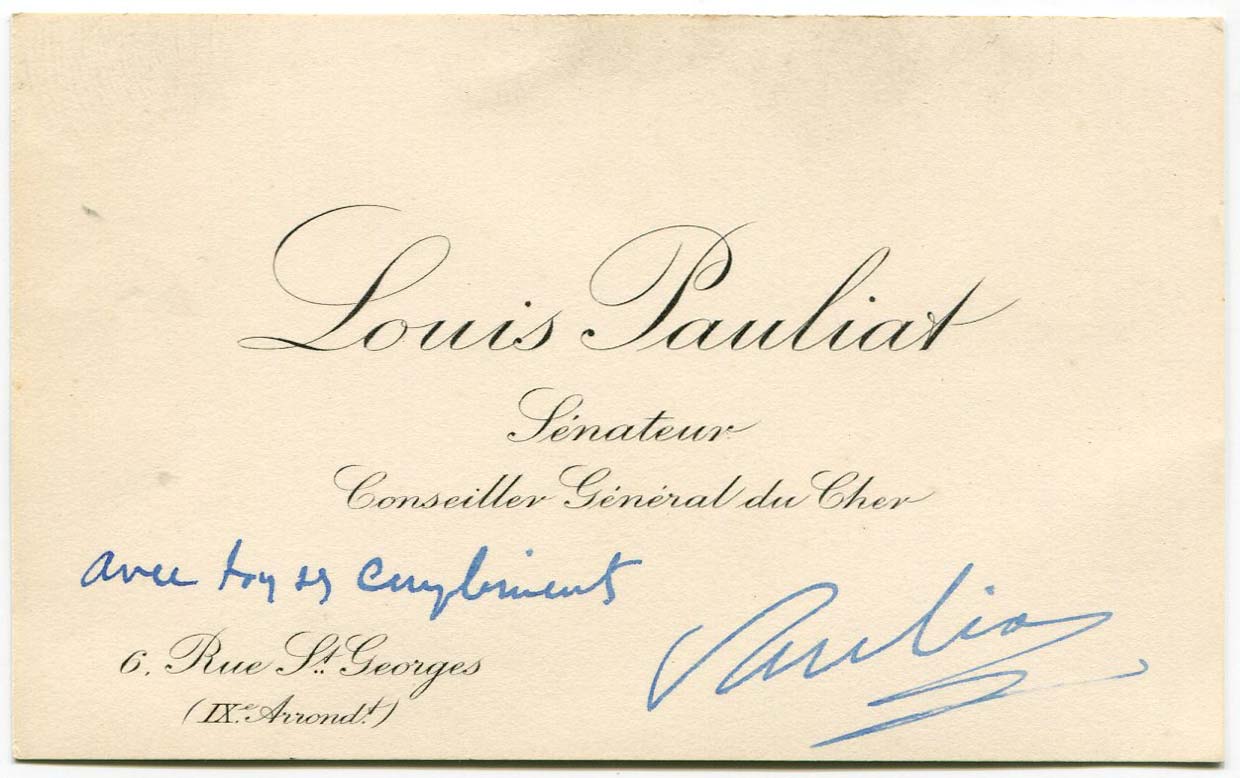 Louis Pauliat
Sénateur
Conseiller Général du Cher
avec tous ses compliments
6, Rue St Georges
(IXe Arrondt)
Pauliat